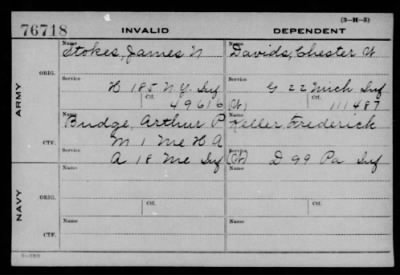 (3-M-3)
76718 INVALID DEPENDENT
Name Name
Stokes, James N Davids, Chester W
ARMY
ORIG.
Service Service
H 185 N.Y. Inf G 22 Mich Inf
Ctf. Ctf.
49616 (W) 111487
Name Name
Budge, Arthur P Keller Frederick
CTF.
M 1 Me H A
A 18 Me Inf (W) D 99 Pa Inf
NAVY
Name Name
ORIG.
Service Service
Ctf. Ctf.
Name Name
CTF.